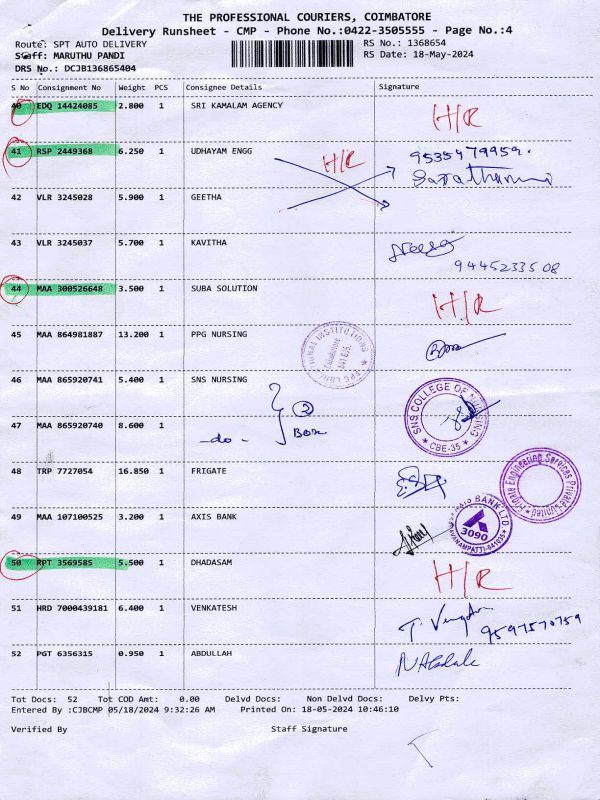 THE PROFESSIONAL COURIERS, COIMBATORE
Delivery Runsheet - CMP - Phone No.:0422-3505555 - Page No.:4
Route: SPT AUTO DELIVERY RS No.: 1368654
Staff: MARUTHU PANDI RS Date: 18-May-2024
DRS No.: DCJB136865404
S No Consignment No Weight PCS Consignee Details Signature
40 EDQ 14424085 2.800 1 SRI KAMALAM AGENCY H/R
41 RSP 2449368 6.250 1 UDHAYAM ENGG H/R 9535479959.
42 VLR 3245028 5.900 1 GEETHA
43 VLR 3245037 5.700 1 KAVITHA
9445233508
44 MAA 300526648 3.500 1 SUBA SOLUTION H/R
45 MAA 864981887 13.200 1 PPG NURSING
46 MAA 865920741 5.400 1 SNS NURSING SNS COLLEGE OF NURSING
2
47 MAA 865920740 8.600 1 -do- BOX * CBE-35 *
48 TRP 7727054 16.850 1 FRIGATE Frigate Engineering Services Private Limited
49 MAA 107100525 3.200 1 AXIS BANK AXIS BANK LTD
3090
50 RPT 3569585 5.500 1 DHADASAM H/R
51 HRD 7000439181 6.400 1 VENKATESH 9597570759
52 PGT 6356315 0.950 1 ABDULLAH
Tot Docs: 52 Tot COD Amt: 0.00 Delvd Docs: Non Delvd Docs: Delvy Pts:
Entered By :CJBCMP 05/18/2024 9:32:26 AM Printed On: 18-05-2024 10:46:10
Verified By Staff Signature